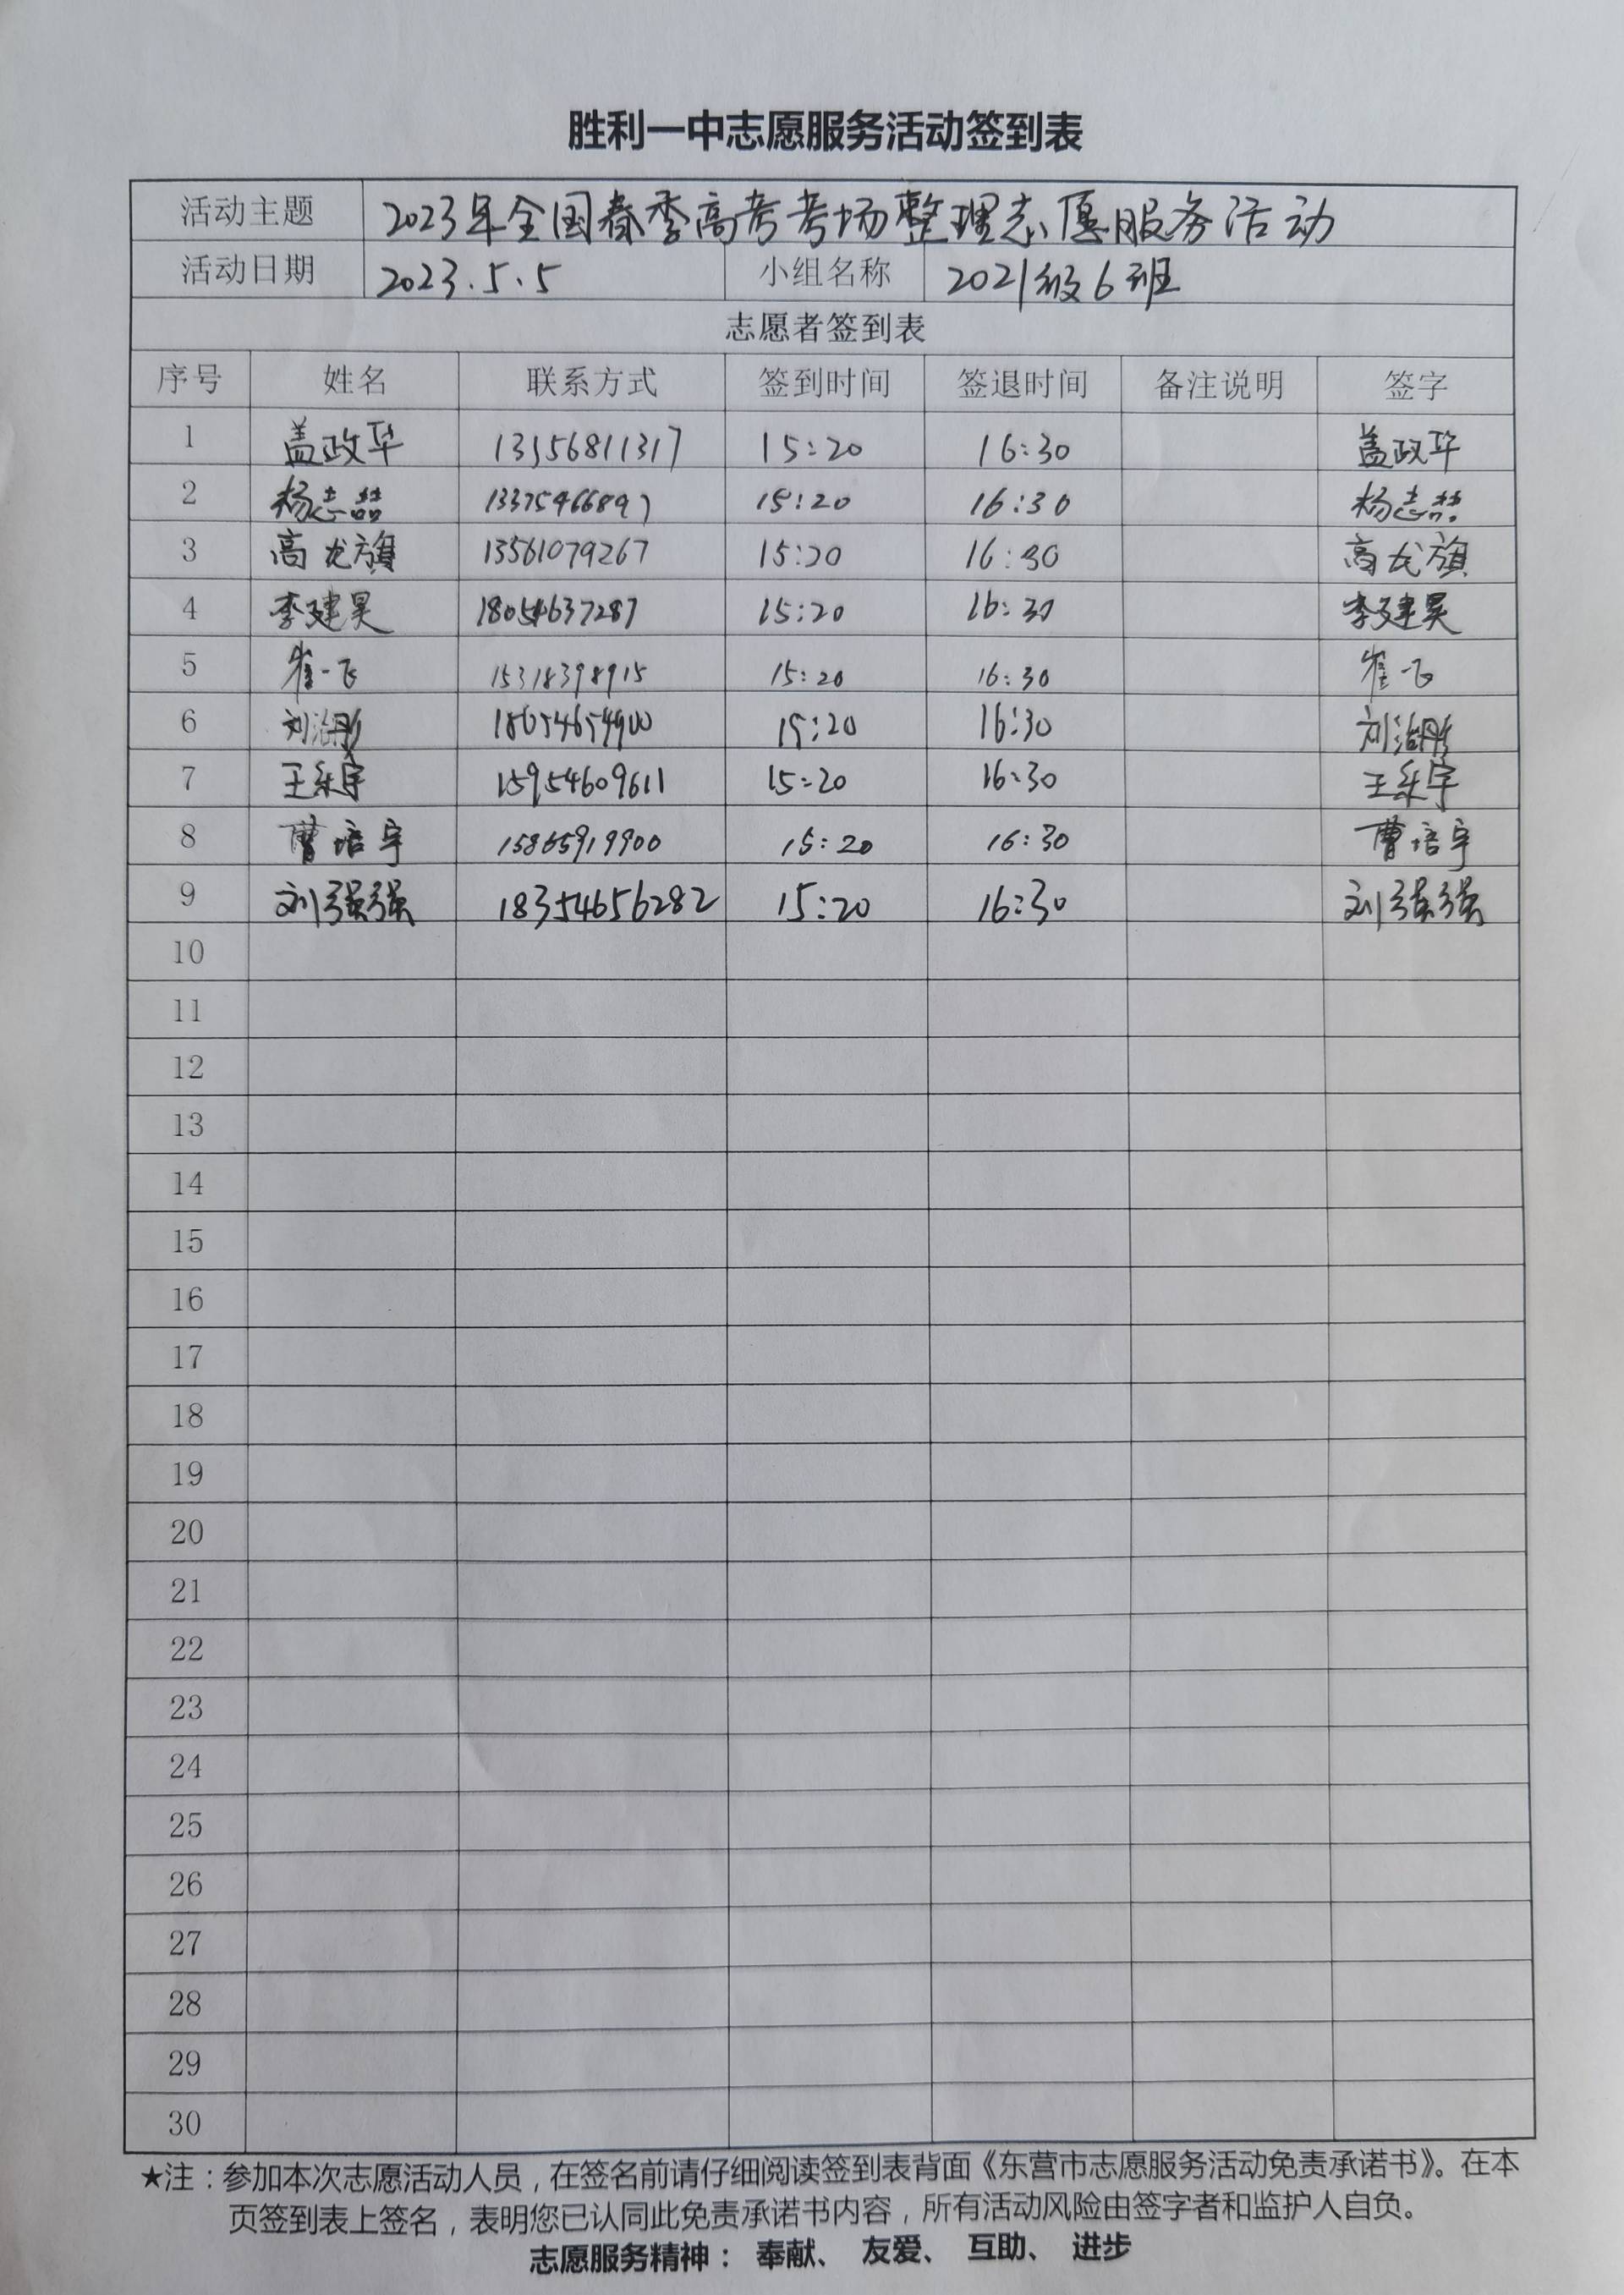 胜利一中志愿服务活动签到表
活动主题 2023年全国春季高考考场整理志愿服务活动
活动日期 2023.5.5 小组名称 2021级6班
志愿者签到表
序号 姓名 联系方式 签到时间 签退时间 备注说明 签字
1 盖政华 13156811317 15:20 16:30 盖政华
2 杨志喆 13375466897 15:20 16:30 杨志喆
3 高龙旗 13561079267 15:20 16:30 高龙旗
4 李建昊 18054637287 15:20 16:30 李建昊
5 崔一飞 15318398915 15:20 16:30 崔一飞
6 刘 18654654900 15:20 16:30 刘
7 王乐宇 15954609611 15:20 16:30 王乐宇
8 曹培宇 15865919900 15:20 16:30 曹培宇
9 刘强强 18354656282 15:20 16:30 刘强强
10
11
12
13
14
15
16
17
18
19
20
21
22
23
24
25
26
27
28
29
30
★注：参加本次志愿活动人员，在签名前请仔细阅读签到表背面《东营市志愿服务活动免责承诺书》。在本
页签到表上签名，表明您已认同此免责承诺书内容，所有活动风险由签字者和监护人自负。
志愿服务精神： 奉献、 友爱、 互助、 进步